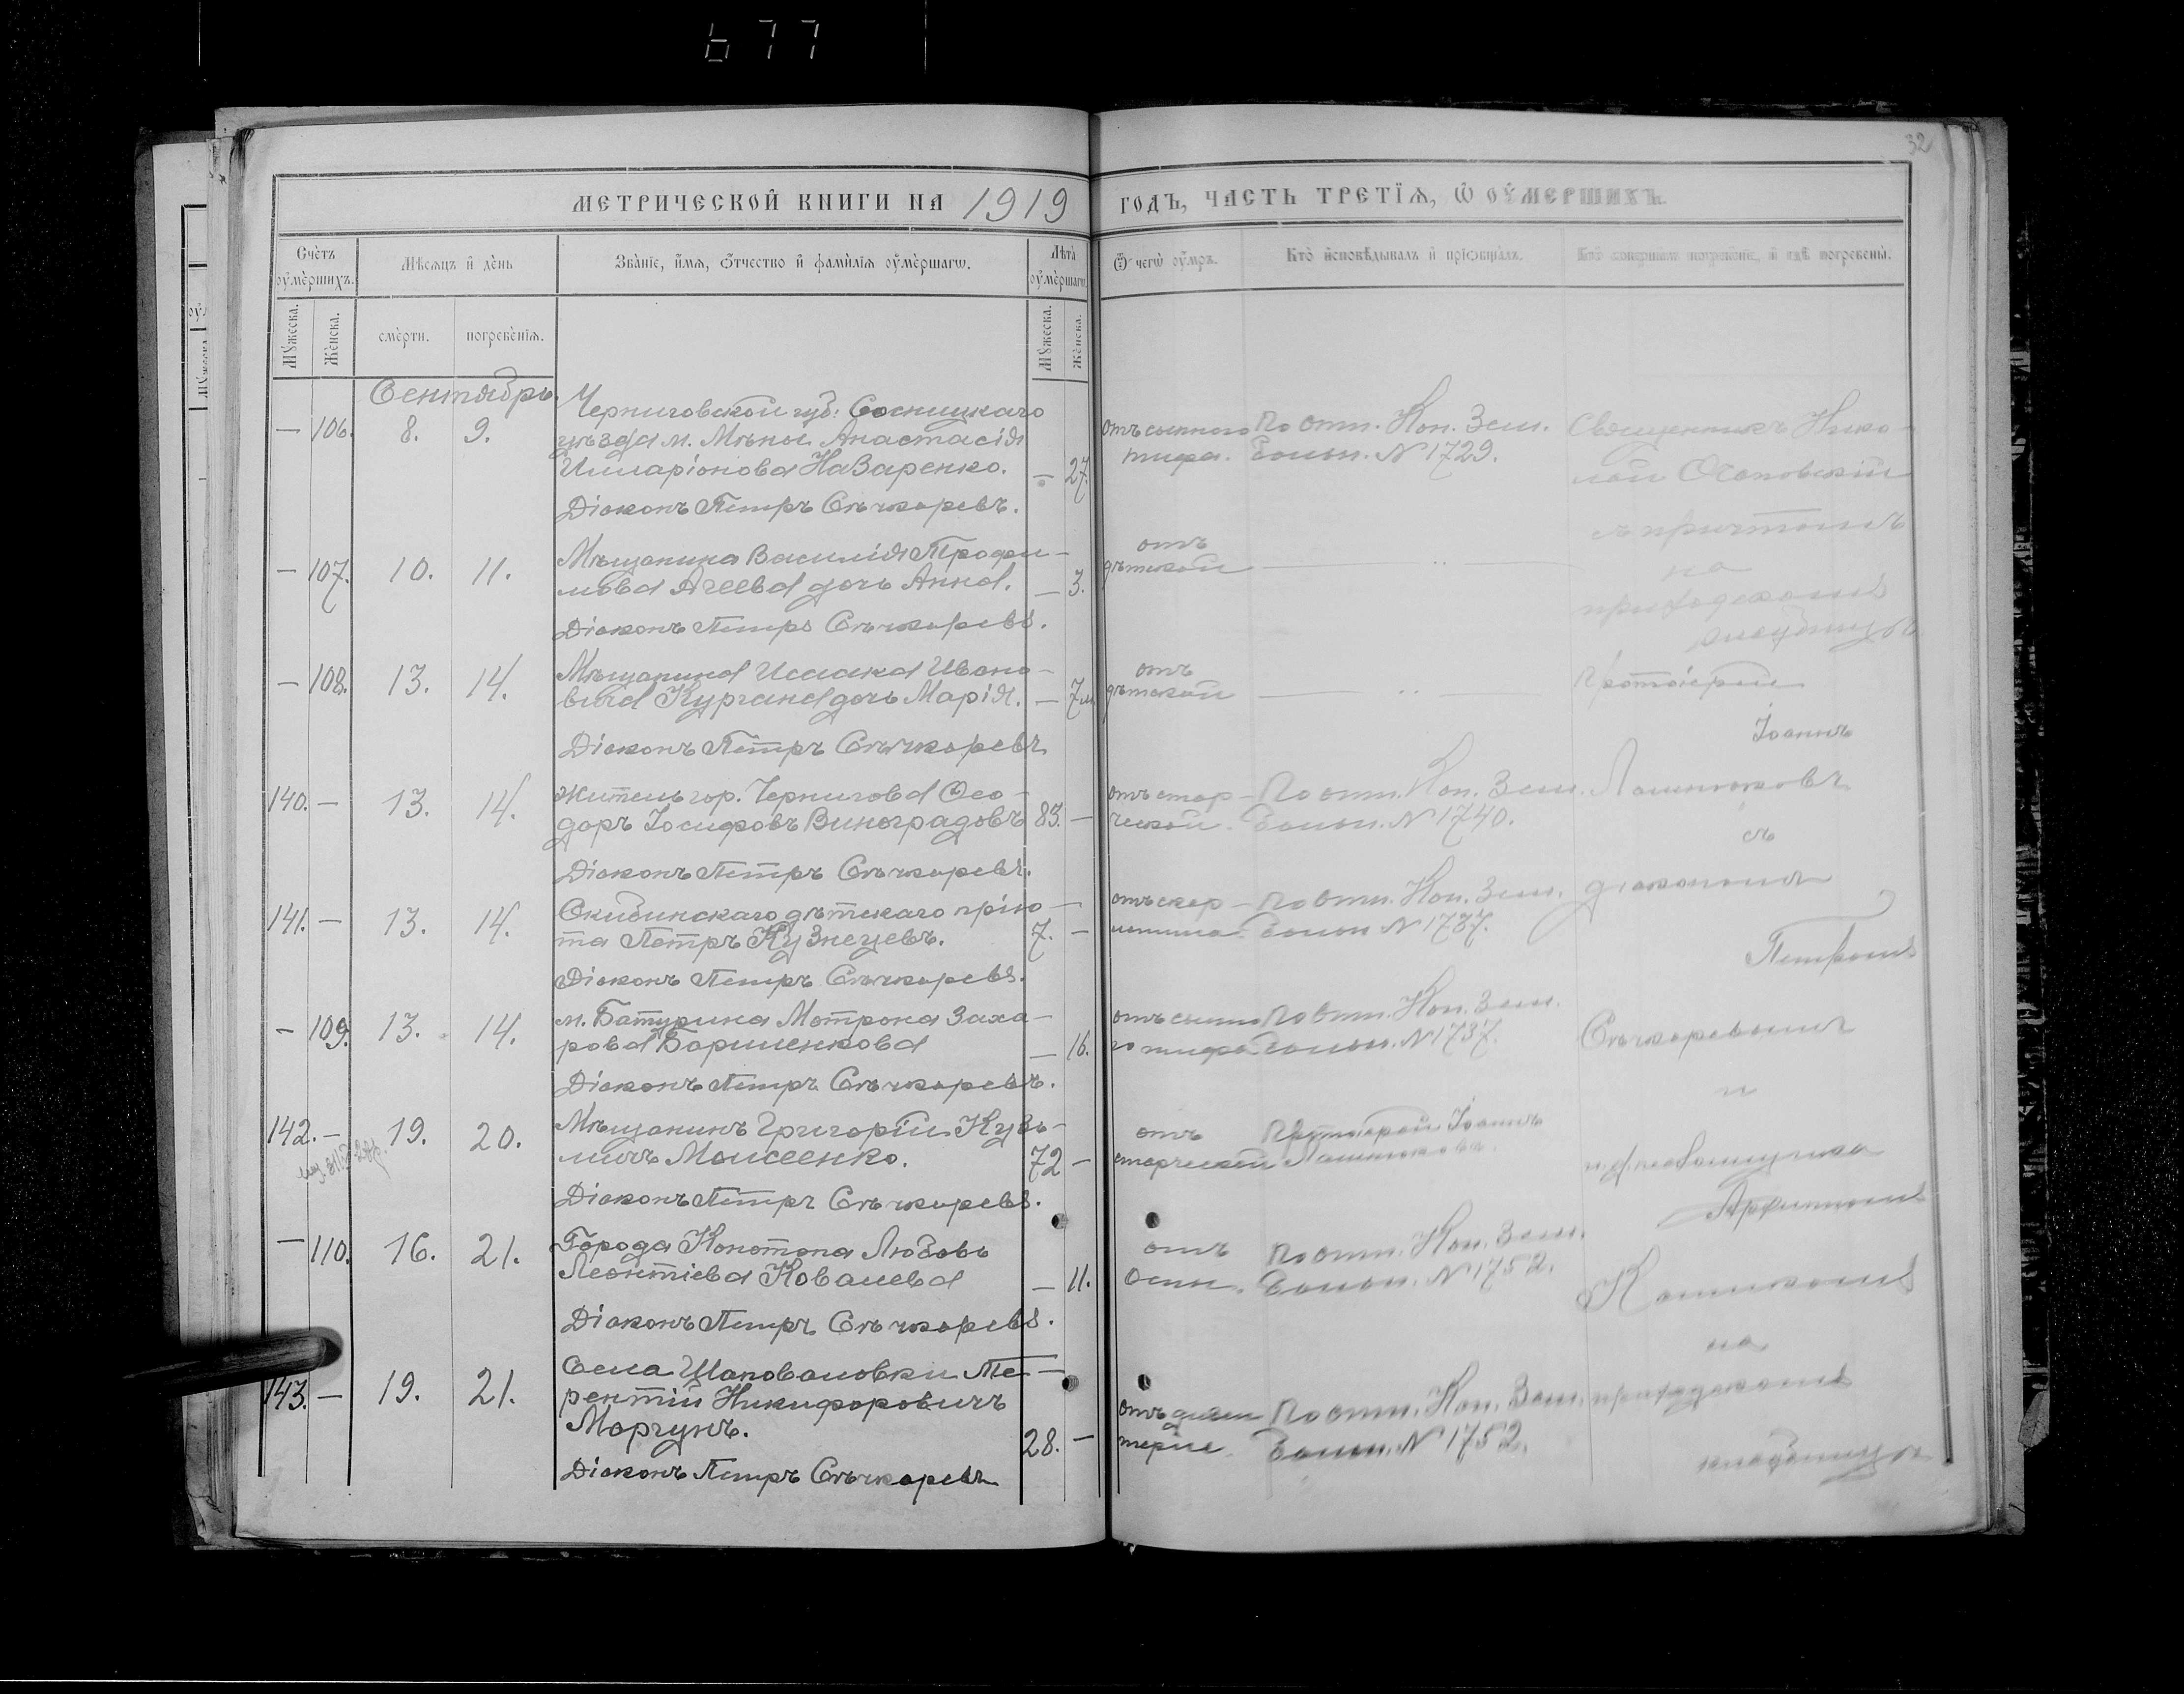 677
32
МЕТРИЧЕСКОЙ КНИГИ НА 1919 ГОДЪ, ЧАСТЬ ТРЕТІѦ, Ѡ ОУМЕРШИХЪ.
Счетъ оумершихъ.
Мѣсяцъ и день
Званіе, имя, отчество и фамилія оумершагѡ.
Лѣта оумершагѡ
Ѿ чегѡ оумръ.
Кто исповѣдывалъ и пріѡбщалъ.
Кто совершалъ погребеніе, и гдѣ погребены.
Мужеска. Женска.
смерти. погребенія.
Мужеска. Женска.
Сентябрь.
— 106. 8. 9.
Черниговской губ: Сосницкаго
уѣзда м. Мѣны Анастасія
Илларіонова Назаренко. — 27.
Діаконъ Петръ Сѣчкаревъ.
отъ сыпного
тифа.
По отн. Кон. Зем.
Больн. № 1729.
Священникъ Нико-
лай
съ причтомъ
на
приходскомъ
кладбищѣ
— 107. 10. 11.
Мѣщанина Василія Трофи-
мова Агеева дочь Анна. — 3.
Діаконъ Петръ Сѣчкаревъ.
отъ
дѣтской — „ —
— 108. 13. 14.
Мѣщанина Исаака Ивано-
вича Кургана дочь Марія. — 7 м.
Діаконъ Петръ Сѣчкаревъ
отъ
дѣтской — „ —
Протоіерей
Іоаннъ
140. — 13. 14.
Житель гор. Чернигова Ѳео-
доръ Іосифовъ Виноградовъ 83. —
Діаконъ Петръ Сѣчкаревъ.
отъ стар-
ческой.
По отн. Кон. Зем.
Больн. № 1740.
съ
діакономъ
141. — 13. 14.
дѣтскаго прію-
та Петръ Кузнецевъ. 7. —
Діаконъ Петръ Сѣчкаревъ.
отъ скар-
латина.
По отн. Кон. Зем.
Больн № 1737.
Петромъ
— 109. 13. 14.
м. Батурина Мотрона Заха-
рова — 16.
Діаконъ Петръ Сѣчкаревъ.
отъ сыпно
го тифа
По отн. Кон. Зем.
Больн. № 1737.
Сѣчкаревымъ
и
142. — 19. 20.
Мѣщанинъ Григорій Кузь-
мичъ Моисеенко. 72 —
Діаконъ Петръ Сѣчкаревъ.
отъ
старческой
Протоіерей Іоаннъ
и. д. псаломщика
— 110. 16. 21.
Города Конотопа Любовь
Леонтіева Ковалева — 11.
Діаконъ Петръ Сѣчкаревъ.
отъ
оспы.
По отн. Кон. Зем.
Больн. № 1752.
на
143. — 19. 21.
Села Шаповаловки Те-
рентій Никифоровичъ
Моргунъ. 28. —
Діаконъ Петръ Сѣчкаревъ
отъ дизен
теріи.
По отн. Кон. Зем.
Больн. № 1752.
приходскомъ
кладбищѣ